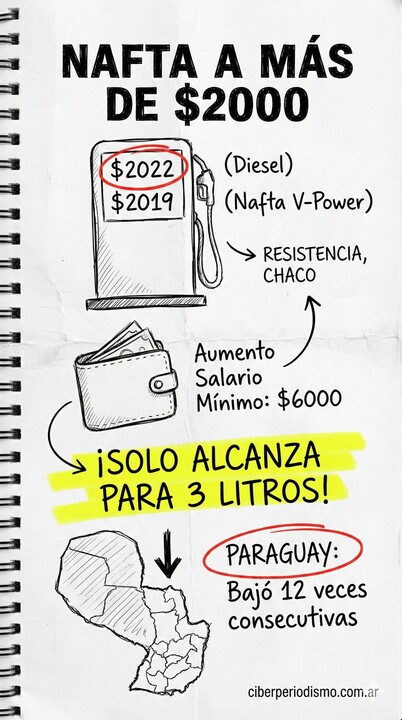 NAFTA A MÁS
DE $2000
$2022 (Diesel)
$2019 (Nafta V-Power)
RESISTENCIA,
CHACO
Aumento
Salario
Mínimo: $6000
¡SOLO ALCANZA
PARA 3 LITROS!
PARAGUAY:
Bajó 12 veces
consecutivas
ciberperiodismo.com.ar